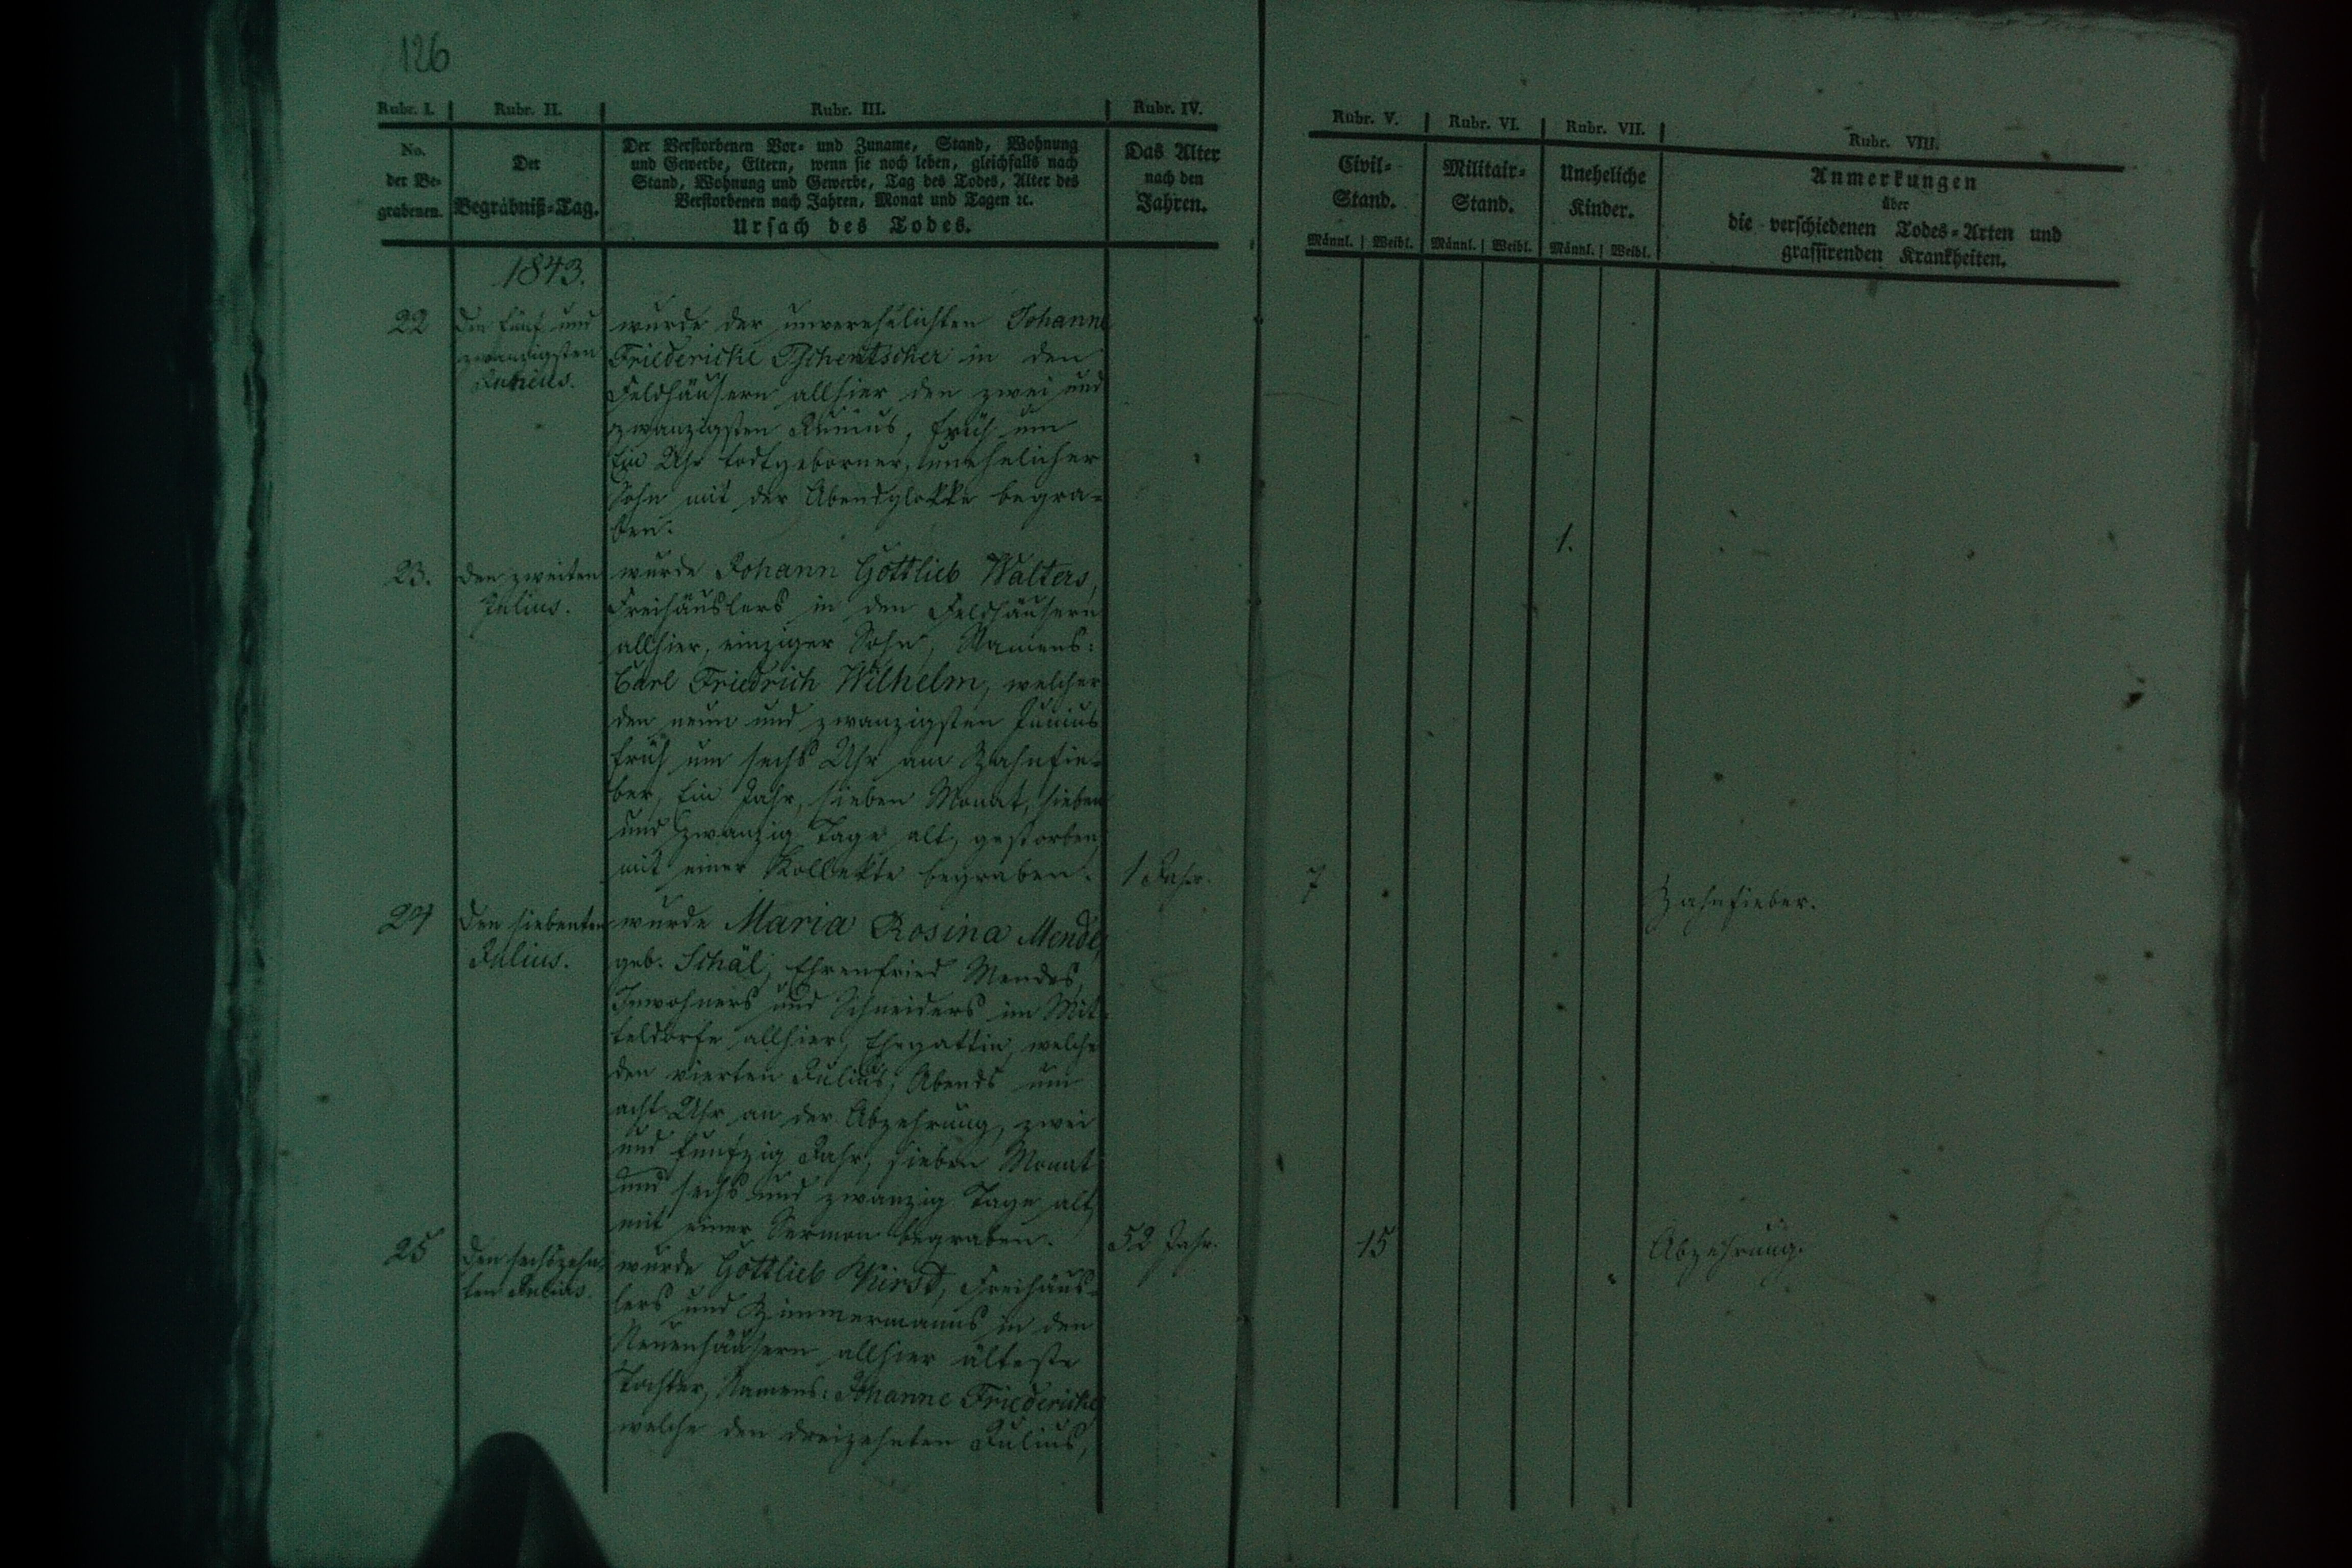 126
Rubr. I. Rubr. II. Rubr. III. Rubr. IV. Rubr. V. Rubr. VI. Rubr. VII. Rubr. VIII.
No.
der Be-
grabenen.
Der
Begräbniß-Tag.
Der Verstorbenen Vor- und Zuname, Stand, Wohnung
und Gewerbe, Eltern, wenn sie noch leben, gleichfalls nach
Stand, Wohnung und Gewerbe, Tag des Todes, Alter des
Verstorbenen nach Jahren, Monat und Tagen ꝛc.
Ursach des Todes.
Das Alter
nach den
Jahren.
Civil-
Stand.
Männl. Weibl.
Militair-
Stand.
Männl. Weibl.
Uneheliche
Kinder.
Männl. Weibl.
Anmerkungen
über
die verschiedenen Todes-Arten und
grassirenden Krankheiten.
1843.
22
Den fünf und
zwanzigsten
Junius.
wurde der unverehelichten Johanne
Friedericke Tschentscher in den
Feldhäusern allhier den zwei und
zwanzigsten Junius, früh um
Ein Uhr todtgeborner, unehelicher
Sohn mit der Abendglokke begra-
ben.
1.
23.
Den zweiten
Julius.
wurde Johann Gottlieb Walters,
Freihäuslers in den Feldhäusern
allhier, einziger Sohn, Namens:
Carl Friedrich Wilhelm, welcher
den neun und zwanzigsten Junius
früh um sechs Uhr am Zahnfie-
ber, Ein Jahr, sieben Monat, sieben
und zwanzig Tage alt, gestorben,
mit einer Kollekte begraben.
1 Jahr.
7
Zahnfieber.
24
Den siebenten
Julius.
wurde Maria Rosina Mende,
geb. Schäl, Ehrenfried Mendes,
Inwohners und Schneiders im Mit-
teldorfe allhier, Ehegattin, welche
den vierten Julius, Abends um
acht Uhr an der Abzehrung, zwei
und funfzig Jahr, sieben Monat
und sechs und zwanzig Tage alt,
mit einer Sermon begraben.
52 Jahr.
15
Abzehrung.
25
Den sechszehn-
ten Julius.
wurde Gottlieb Hirst, Freihäus-
lers und Zimmermanns in den
Neuenhäusern allhier älteste
Tochter, Namens: Johanne Friedericke,
welche den dreizehnten Julius,